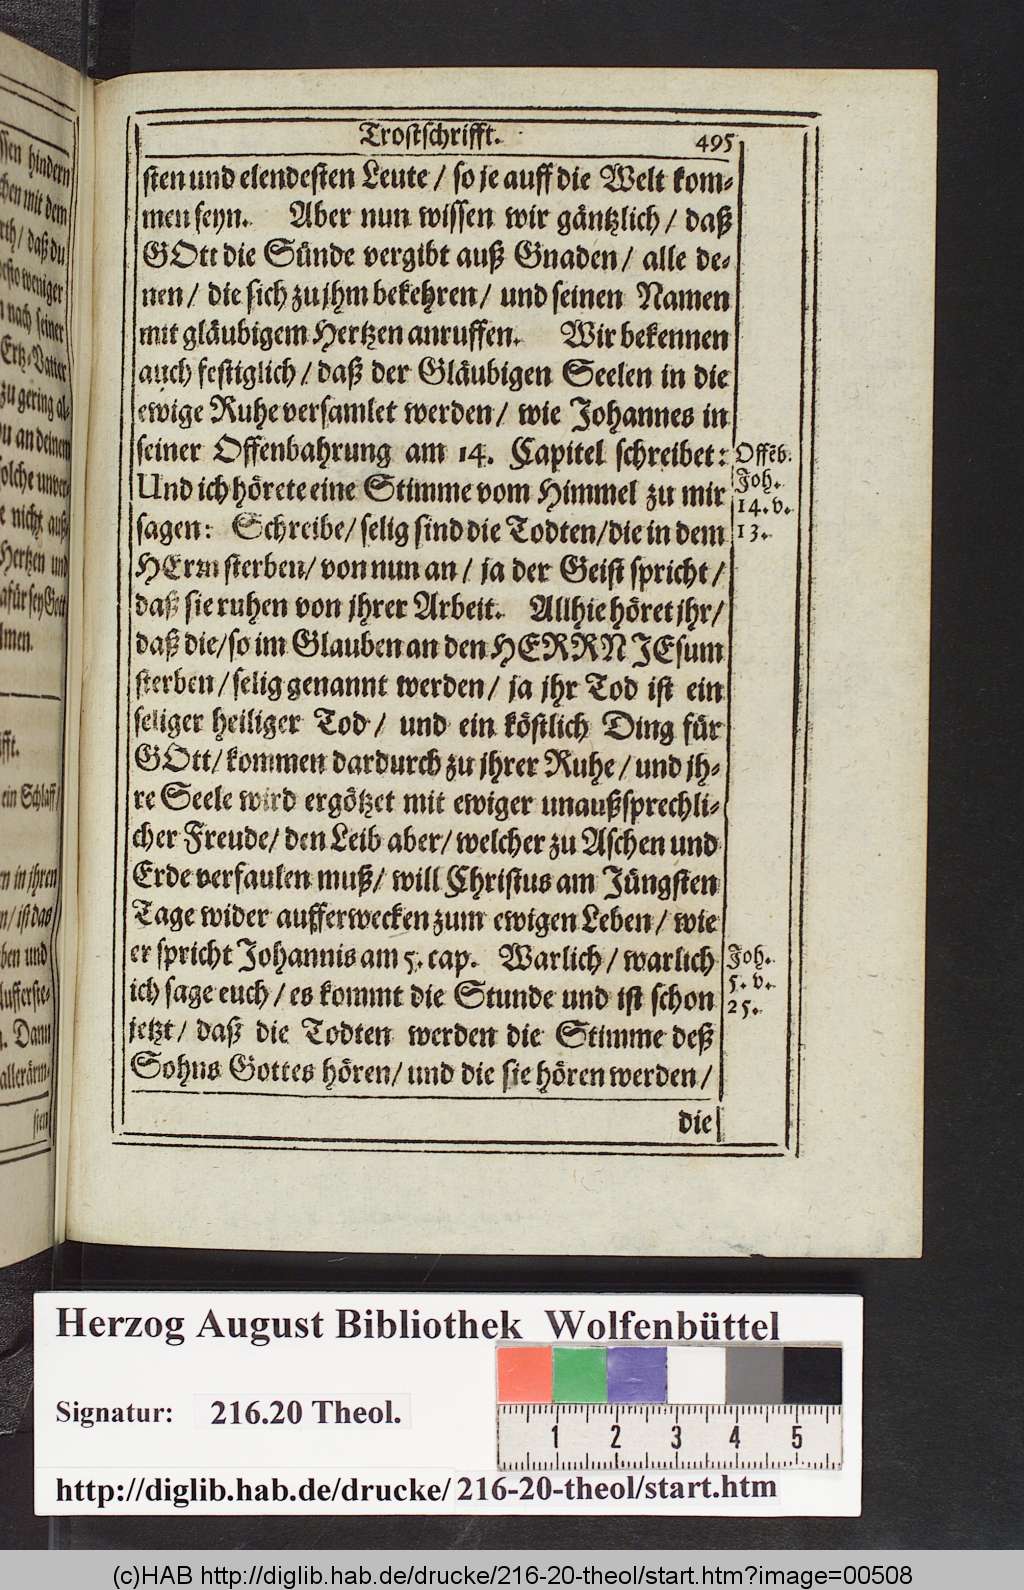 Trostschrifft. 495
sten und elendesten Leute / so je auff die Welt kom-
men seyn. Aber nun wissen wir gäntzlich / daß
GOtt die Sünde vergibt auß Gnaden / alle de-
nen / die sich zu jhm bekehren / und seinen Namen
mit gläubigem Hertzen anruffen. Wir bekennen
auch festiglich / daß der Gläubigen Seelen in die
ewige Ruhe versamlet werden / wie Johannes in
seiner Offenbahrung am 14. Capitel schreibet:
Und ich hörete eine Stimme vom Himmel zu mir
sagen: Schreibe / selig sind die Todten / die in dem
HErrn sterben / von nun an / ja der Geist spricht /
daß sie ruhen von jhrer Arbeit. Allhie höret jhr /
daß die / so im Glauben an den HERRN JEsum
sterben / selig genannt werden / ja jhr Tod ist ein
seliger heiliger Tod / und ein köstlich Ding für
GOtt / kommen dardurch zu jhrer Ruhe / und jh-
re Seele wird ergötzet mit ewiger unaußsprechli-
cher Freude / den Leib aber / welcher zu Aschen und
Erde verfaulen muß / will Christus am Jüngsten
Tage wider aufferwecken zum ewigen Leben / wie
er spricht Johannis am 5. cap. Warlich / warlich
ich sage euch / es kommt die Stunde und ist schon
jetzt / daß die Todten werden die Stimme deß
Sohns Gottes hören / und die sie hören werden /
die
Offēb.
Joh.
14. v.
13.
Joh.
5. v.
25.
ssen hindern
mit dem
daß du
weniger
nach seiner
Ertz-Vätter
zu gering al-
an deinem
solche unver-
nicht auß
Hertzen und
dafür sey Gott
Amen.
ein Schlaff /
in jhren
ist das
und
Aufferste-
Dann
allerärm-
sten
Herzog August Bibliothek Wolfenbüttel
Signatur: 216.20 Theol.
1 2 3 4 5
http://diglib.hab.de/drucke/216-20-theol/start.htm
(c)HAB http://diglib.hab.de/drucke/216-20-theol/start.htm?image=00508